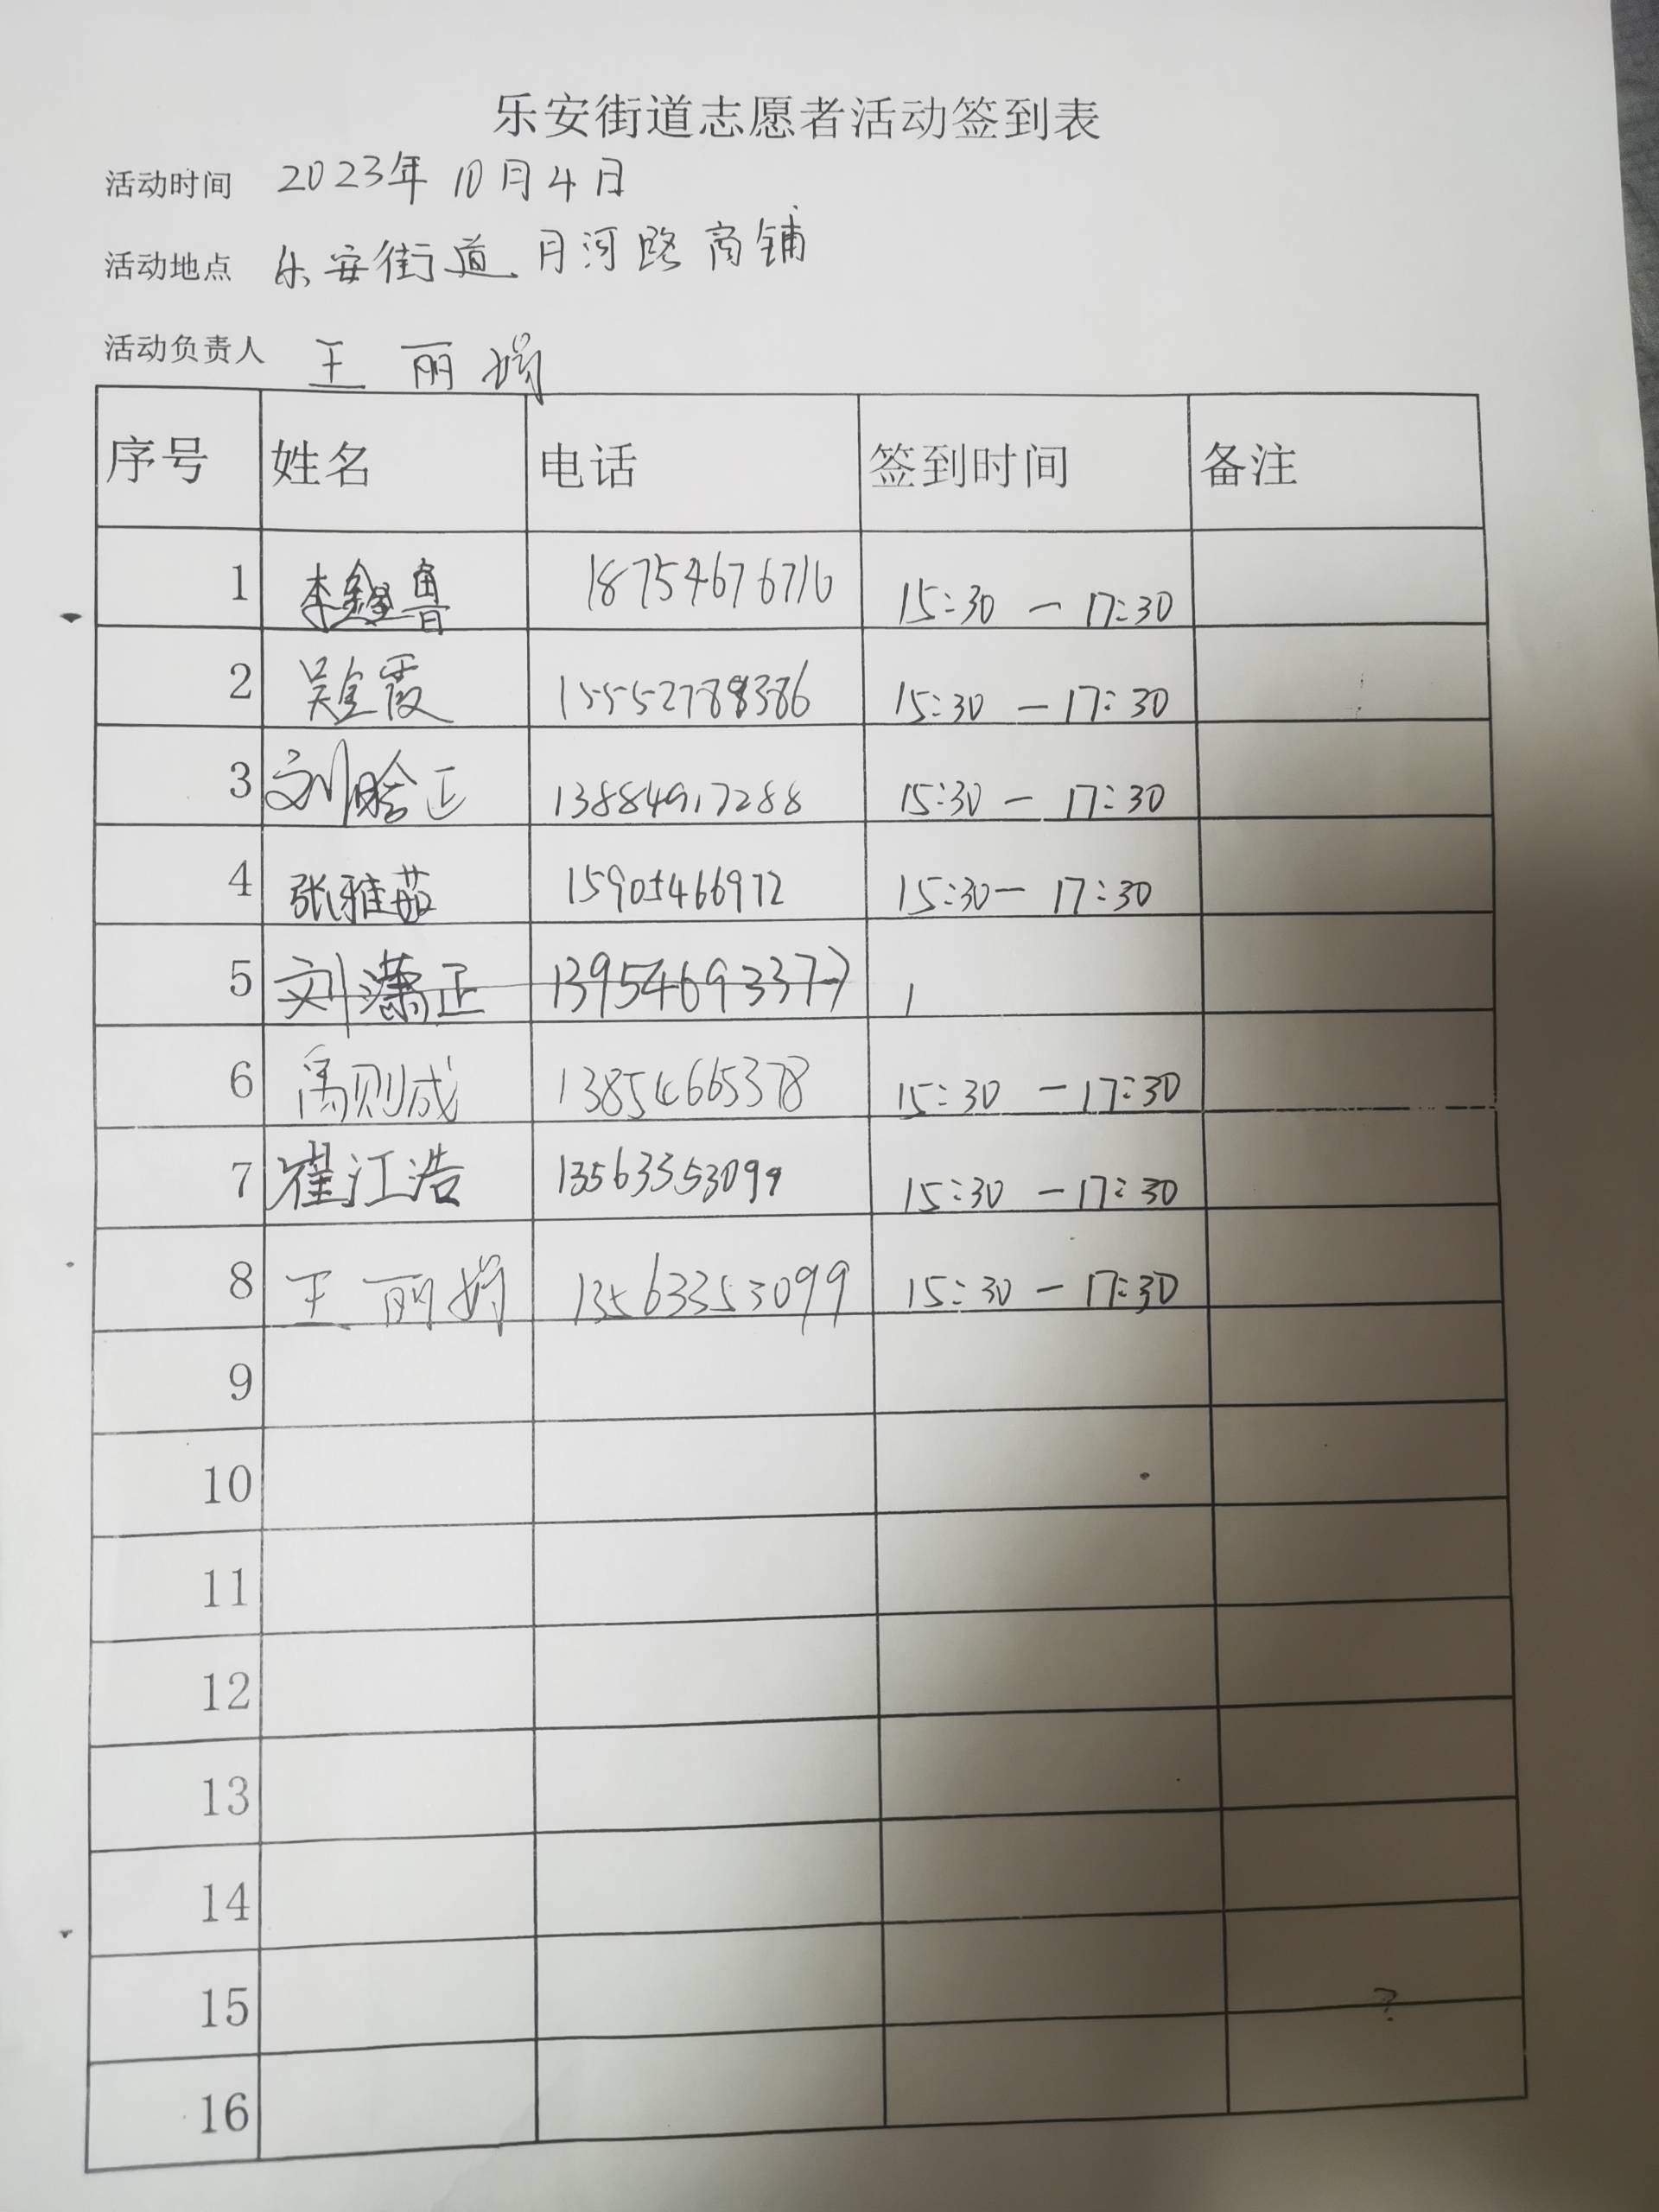 乐安街道志愿者活动签到表
活动时间 2023年10月4日
活动地点 乐安街道月河路商铺
活动负责人 王丽娟
序号 姓名 电话 签到时间 备注
1 李鲁 18754676716 15:30 — 17:30
2 吴金霞 15552788386 15:30 — 17:30
3 刘晗正 13884917288 15:30 — 17:30
4 张雅茹 15905466972 15:30 — 17:30
5 刘潇正 13954693377
6 禹则成 13854665378 15:30 — 17:30
7 崔江浩 13563353099 15:30 — 17:30
8 王丽娟 13563353099 15:30 — 17:30
9
10
11
12
13
14
15
?
16